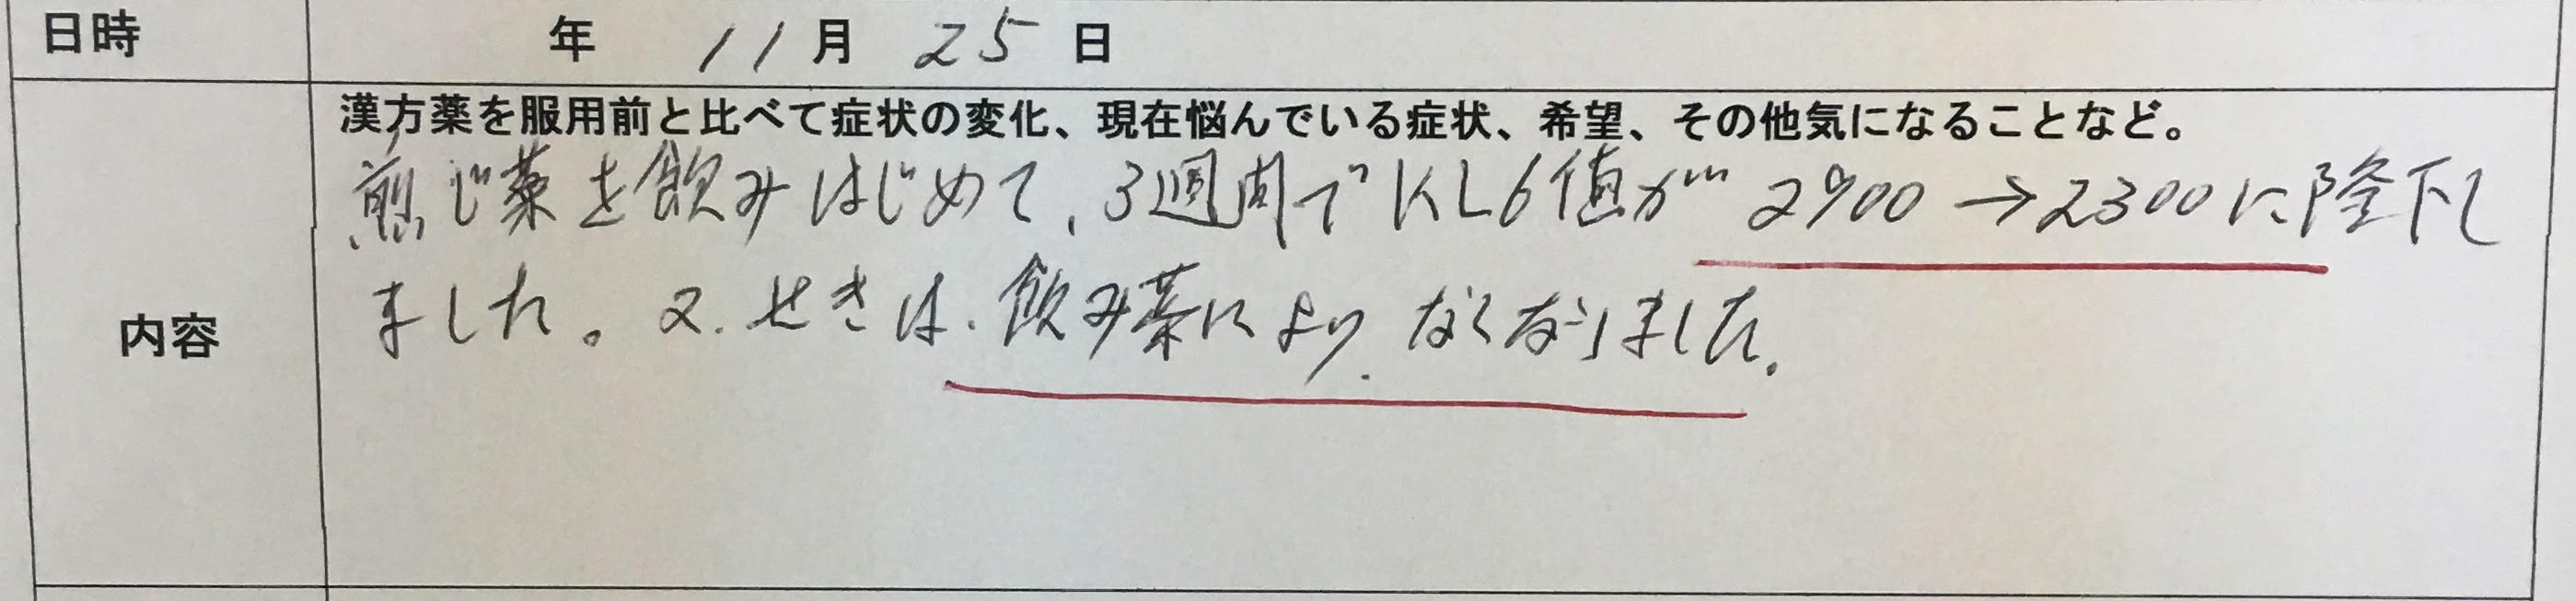 日時 年 11月 25日
漢方薬を服用前と比べて症状の変化、現在悩んでいる症状、希望、その他気になることなど。
煎じ薬を飲みはじめて、3週間でKL6値が2900→2300に降下し
ました。又、せきは、飲み薬により、なくなりました。
内容